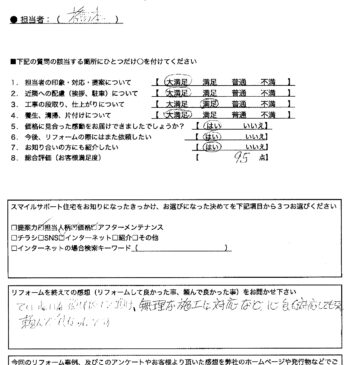 ●担当者：（ 橋本 ）
■下記の質問の該当する箇所にひとつだけ○を付けてください
1．担当者の印象・対応・提案について 【 大満足 満足 普通 不満 】
2．近隣への配慮（挨拶、駐車）について 【 大満足 満足 普通 不満 】
3．工事の段取り、仕上がりについて 【 大満足 満足 普通 不満 】
4．養生、清掃、片付けについて 【 大満足 満足 普通 不満 】
5．価格に見合った感動をお届けできましたでしょうか？ 【 はい いいえ】
6．今後、リフォームの際にはまた依頼したい 【 はい いいえ】
7．お知り合いの方にも紹介したい 【 はい いいえ】
8．総合評価（お客様満足度） 【 95 点】
スマイルサポート住宅をお知りになったきっかけ、お選びになった決めてを下記項目から３つお選びください
□提案力□担当人柄□価格□アフターメンテナンス
□チラシ□SNS□インターネット□紹介□その他
□インターネットの場合検索キーワード【 】
リフォームを終えての感想（リフォームして良かった事、頼んで良かった事）をお聞かせ下さい
無理な施工に対応など
今回のリフォーム事例、及びこのアンケートやお客様より頂いた感想を弊社のホームページや発行物などでご